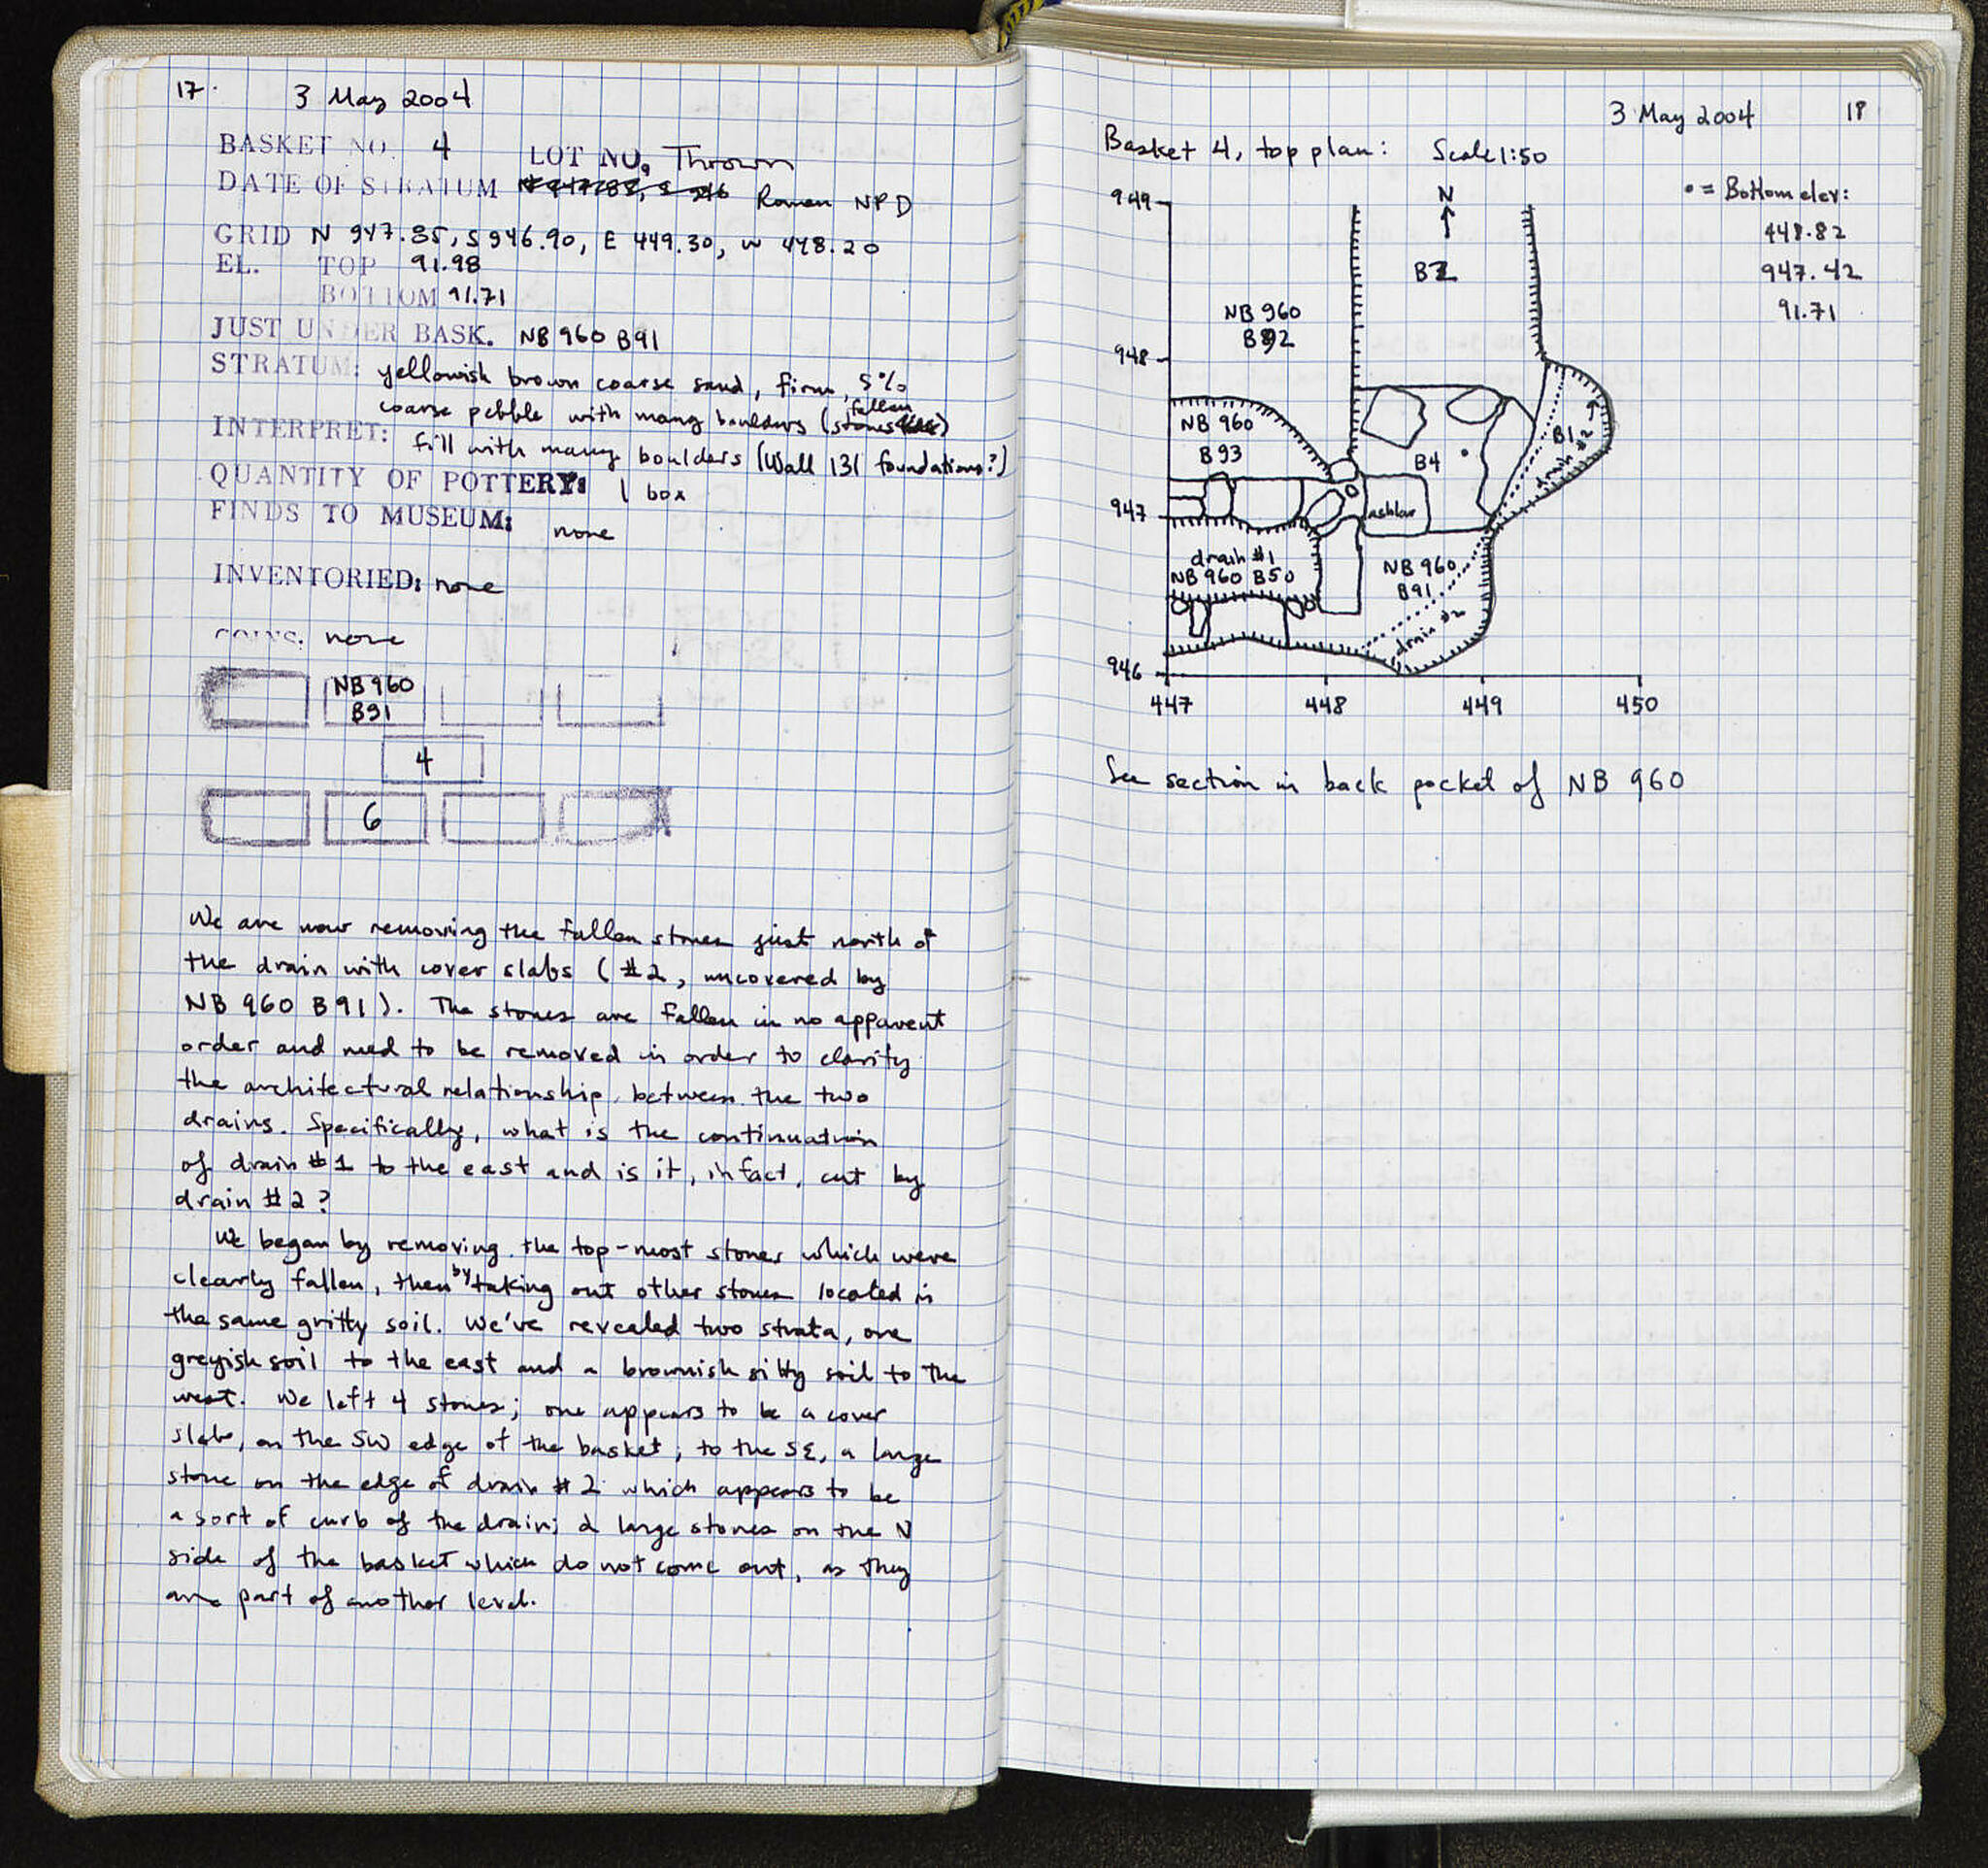 17. 3 May 2004
BASKET NO. 4 LOT NO. Thrown
DATE OF STRATUM Roman NPD
GRID N 947.85, S 946.90, E 449.30, W 448.20
EL. TOP 91.98
BOTTOM 91.71
JUST UNDER BASK. NB 960 B91
STRATUM: yellowish brown coarse sand, firm, 5%
coarse pebble with many boulders (fallen stones)
INTERPRET: fill with many boulders (Wall 131 foundations?)
QUANTITY OF POTTERY: 1 box
FINDS TO MUSEUM: none
INVENTORIED: none
COINS: none
NB 960
B91
4
6
We are now removing the fallen stones just north of
the drain with cover slabs (#2, uncovered by
NB 960 B91). The stones are fallen in no apparent
order and need to be removed in order to clarify
the architectural relationship between the two
drains. Specifically, what is the continuation
of drain #1 to the east and is it, in fact, cut by
drain #2?
We began by removing the top-most stones which were
clearly fallen, then by taking out other stones located in
the same gritty soil. We've revealed two strata, one
greyish soil to the east and a brownish silty soil to the
west. We left 4 stones; one appears to be a cover
slab, on the SW edge of the basket; to the SE, a large
stone on the edge of drain #2 which appears to be
a sort of curb of the drain; 2 large stones on the N
side of the basket which do not come out, as they
are part of another level.
3 May 2004 18
Basket 4, top plan: Scale 1:50
• = Bottom elev:
448.82
947.42
91.71
949
N
B2
NB 960
B92
948
NB 960
B93
B4
B1
drain #2
947
ashlar
drain #1
NB 960 B50
NB 960
B91
drain #2
946
447 448 449 450
See section in back pocket of NB 960